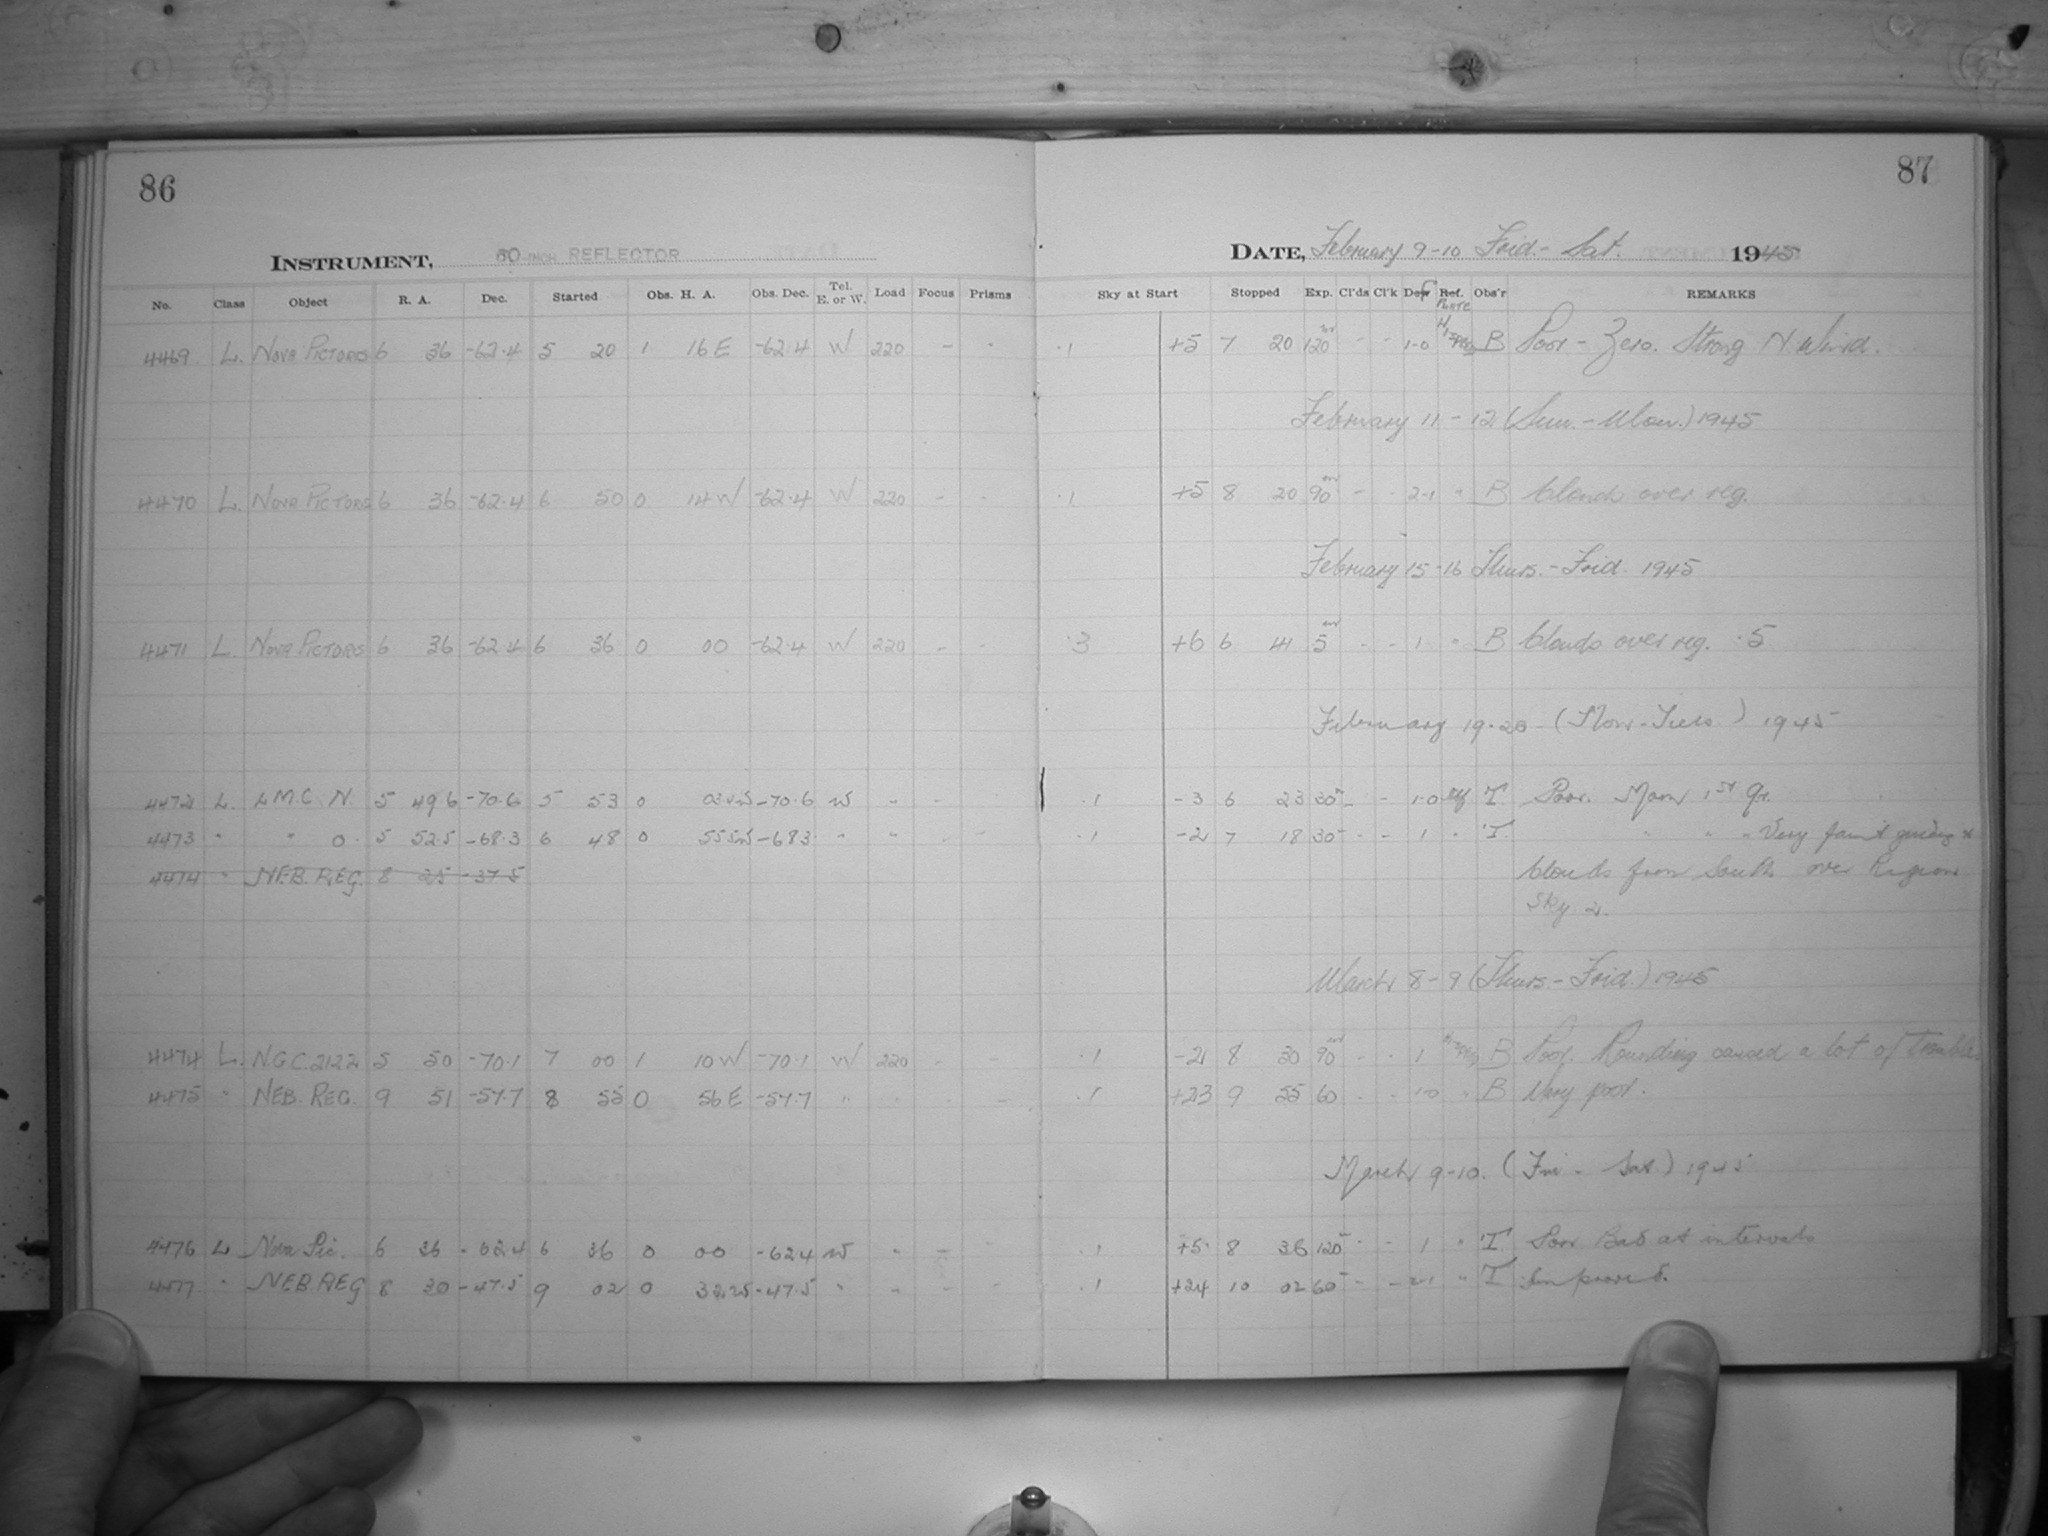 86
87
INSTRUMENT, 60-INCH REFLECTOR
DATE, February 9-10 Frid.- Sat. 1945
No. Class Object R. A. Dec. Started Obs. H. A. Obs. Dec. Tel. E. or W. Load Focus Prisms Sky at Start Stopped Exp. Cl'ds Cl'k Dew Ref. Obs'r REMARKS
PLATE
4469 L. NOVA PICTORIS 6 36 -62.4 5 20 1 16 E -62.4 W 220 - - .1 +5 7 20 120 - - 1-0 B Poor - Zero. Strong N. Wind.
February 11 - 12 (Sun. - Mon.) 1945
4470 L. NOVA PICTORIS 6 36 -62.4 6 50 0 14 W -62.4 W 220 - - .1 +5 8 20 90 - - 2-1 " B Clouds over reg.
February 15-16 Thurs. - Frid. 1945
4471 L. NOVA PICTORIS 6 36 -62.4 6 36 0 00 -62.4 W 220 - - .3 +6 6 41 5 - - 1 " B Clouds over reg. .5
February 19-20 (Mon-Tues.) 1945
4472 L. L.M.C N. 5 49.6 -70.6 5 53 0 03 W -70.6 W - - - .1 -3 6 23 30 - - 1-0 T. Poor. Moon 1st Qr.
4473 " " O. 5 52.5 -68.3 6 48 0 55.5 W -68.3 " " - - .1 -2 7 18 30 - - 1 " T. " " " Very faint guiding *
4474 " NEB. REG. 8 25 -37.5 Clouds from South over Region
Sky 2.
March 8-9 (Thurs-Frid.) 1945
4474 L. N.G.C. 2122 5 50 -70.1 7 00 1 10 W -70.1 W 220 - - .1 -2 8 30 90 - - 1 B Poor. Rounding caused a lot of Trouble
4475 " NEB. REG. 9 51 -57.7 8 55 0 56 E -57.7 " " - - .1 +23 9 55 60 - - 1-0 " B Very poor.
March 9-10. (Fri - Sat.) 1945
4476 L Nova Pic. 6 36 -62.4 6 36 0 00 -62.4 W - - - .1 +5 8 36 120 - - 1 " T. Poor Bad at intervals
4477 " NEB. REG 8 30 -47.5 9 02 0 32 W -47.5 " - - .1 +24 10 02 60 - - 2-1 " T Improved.